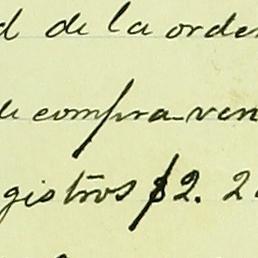 d de la orden
de compra-ven
gistros $2. 2